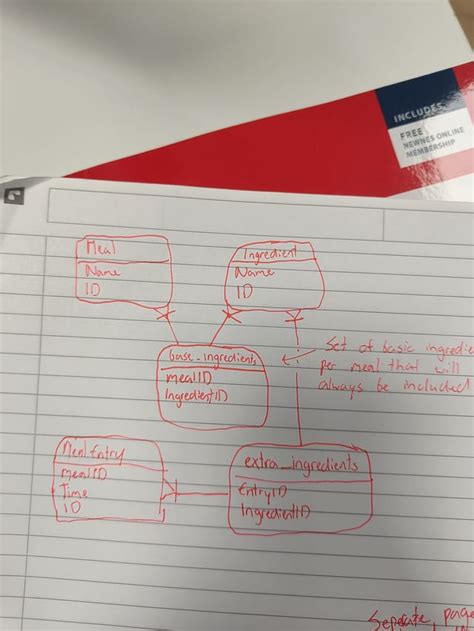 INCLUDES
FREE
NEWNES ONLINE
MEMBERSHIP
Meal
Name
ID
Ingredient
Name
ID
base_ingredients
mealID
IngredientID
Set of basic ingredie
per meal that will
always be included
Meal Entry
mealID
Time
ID
extra_ingredients
EntryID
IngredientID
Seperate, page